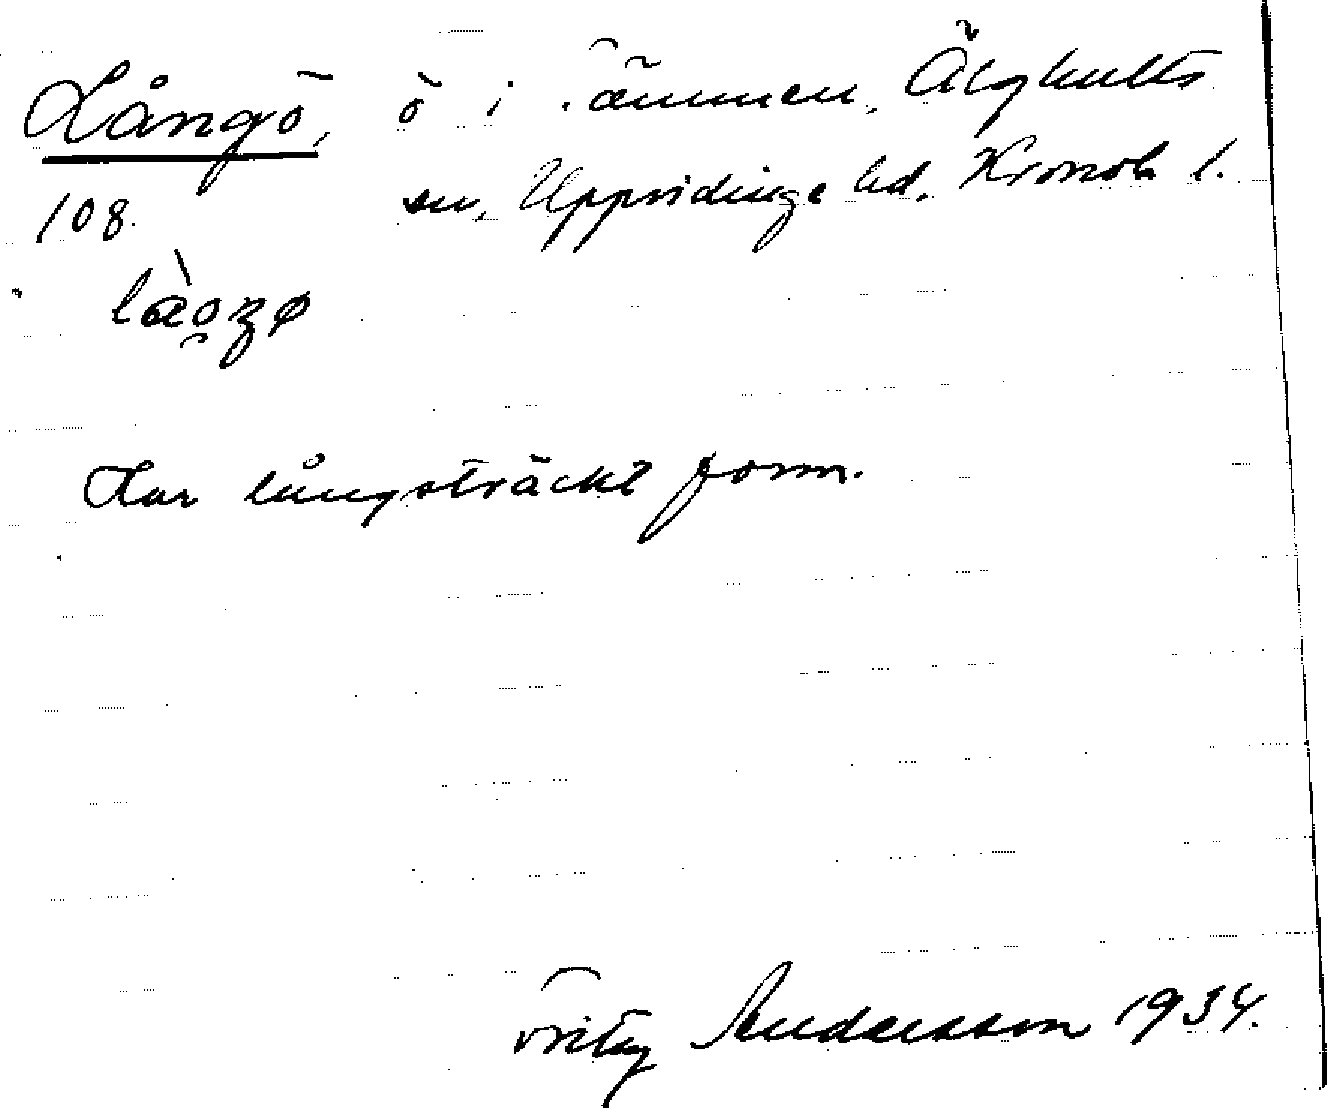 Långö, ö i Tämmen, Älghults
sn, Uppvidinge hd. Kronob l.
108.
Har långsträckt form.
Andersson 1934.